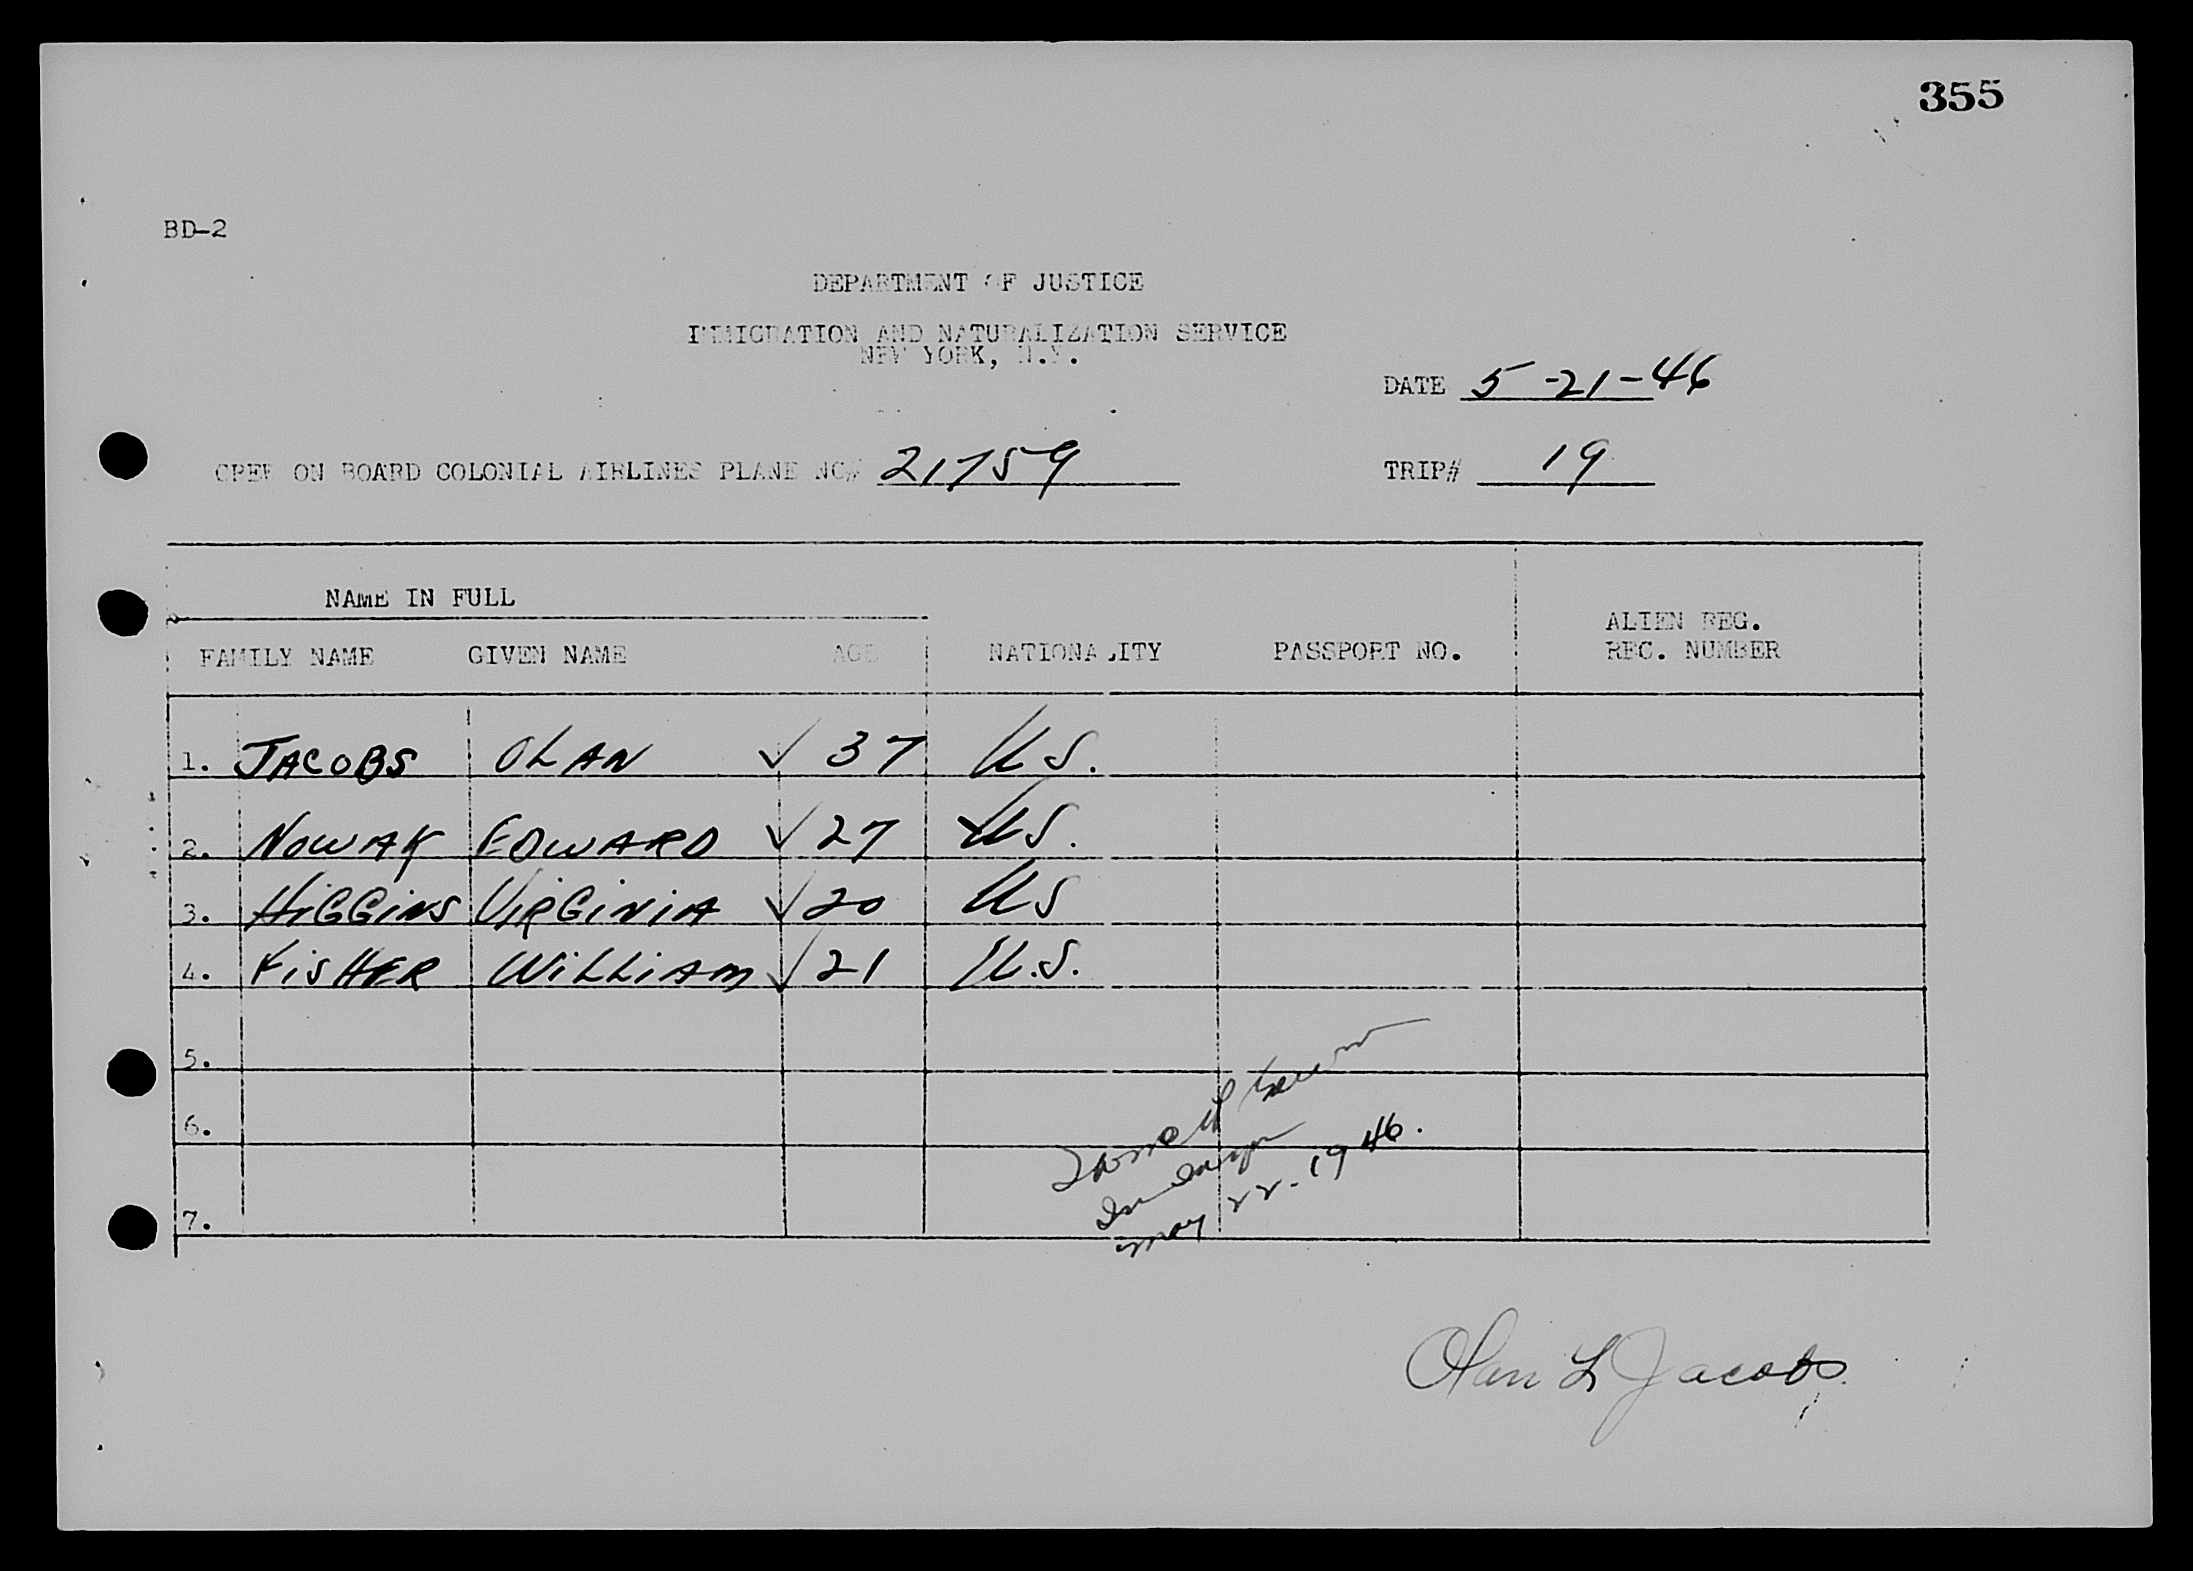 355
BD-2
DEPARTMENT OF JUSTICE
IMMIGRATION AND NATURALIZATION SERVICE
NEW YORK, N.Y.
DATE 5-21-46
CREW ON BOARD COLONIAL AIRLINES PLANE NC# 21759 TRIP# 19
NAME IN FULL
ALIEN REG.
FAMILY NAME GIVEN NAME AGE NATIONALITY PASSPORT NO. REC. NUMBER
1. JACOBS OLAN ✓ 37 U.S.
2. NOWAK EDWARD ✓ 27 U.S.
3. HIGGINS VIRGINIA ✓ 20 US
4. FISHER WILLIAM ✓ 21 U.S.
5.
6.
7.
May 22-1946.
Olan L Jacobs